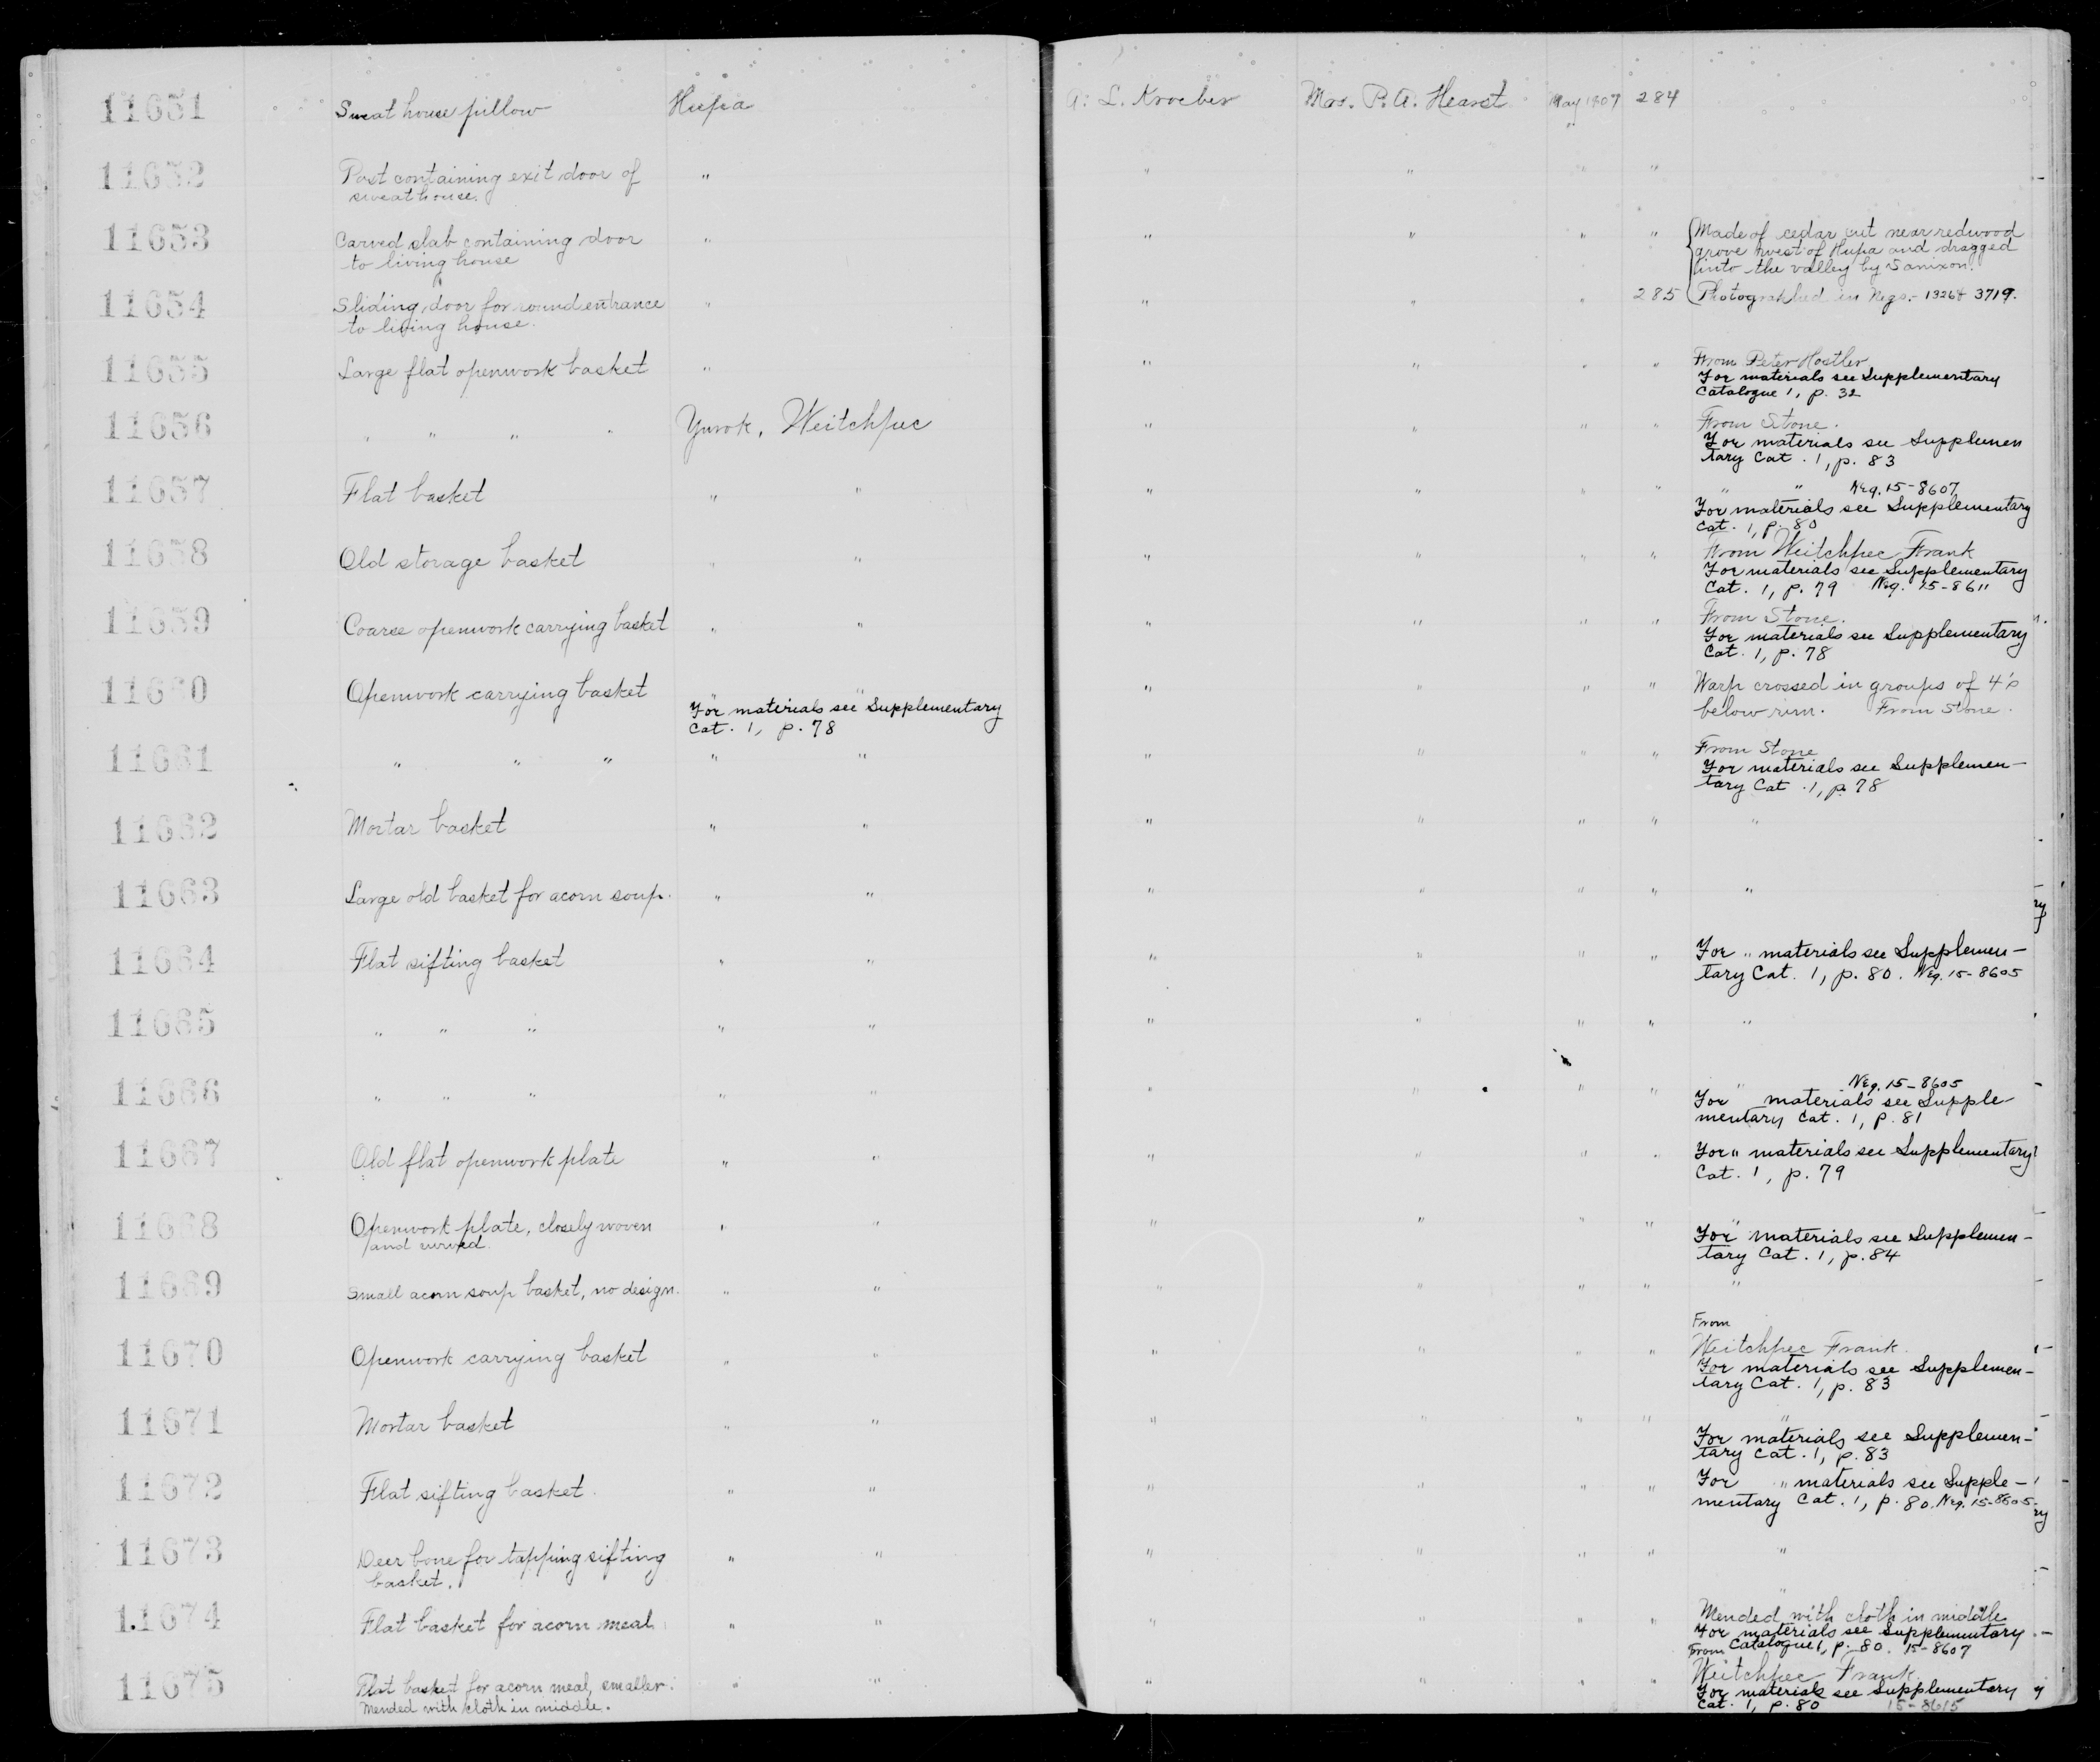 11651 Sweat house pillow Hupa A. L. Kroeber Mrs. P. A. Hearst May 1907 284
11652 Post containing exit door of " " " " "
sweat house.
11653 Carved slab containing door " " " " " Made of cedar cut near redwood
to living house grove west of Hupa and dragged
into the valley by Samixon.
11654 Sliding door for round entrance " " " " 285 Photographed in Negs. - 1326 & 3719.
to living house.
11655 Large flat openwork basket " " " " " From Peter Hostler
For materials see Supplementary
Catalogue 1, p. 32
11656 " " " " Yurok, Weitchpec " " " " From Stone.
For materials see Supplemen
tary Cat. 1, p. 83
11657 Flat basket " " " " " " " " Neg. 15-8607
For materials see Supplementary
Cat. 1, p. 80
11658 Old storage basket " " " " " " From Weitchpec Frank
For materials see Supplementary
Cat. 1, p. 79 Neg. 15-8611
11659 Coarse openwork carrying basket " " " " " " From Stone.
For materials see Supplementary
Cat. 1, p. 78
11660 Openwork carrying basket " " " " " " Warp crossed in groups of 4's
For materials see Supplementary below rim. From Stone.
Cat. 1, p. 78
11661 " " " " " " " " " From Stone
For materials see Supplemen-
tary Cat. 1, p. 78
11662 Mortar basket " " " " " " "
11663 Large old basket for acorn soup. " " " " " " "
11664 Flat sifting basket " " " " " " For " materials see Supplemen-
tary Cat. 1, p. 80. Neg. 15-8605
11665 " " " " " " " " " "
11666 " " " " " " " " " " Neg. 15-8605
For materials see Supple
mentary Cat. 1, p. 81
11667 Old flat openwork plate " " " " " " For " materials see Supplementary
Cat. 1, p. 79
11668 Openwork plate, closely woven " " " " " " "
and curved. For materials see Supplemen-
tary Cat. 1, p. 84
11669 Small acorn soup basket, no design. " " " " " " "
From
11670 Openwork carrying basket " " " " " " Weitchpec Frank.
For materials see Supplemen-
tary Cat. 1, p. 83
11671 Mortar basket " " " " " " "
For materials see Supplemen-
tary Cat. 1, p. 83
11672 Flat sifting basket. " " " " " " For " materials see Supple-
mentary Cat. 1, p. 80. Neg. 15-8605.
11673 Deer bone for tapping sifting " " " " " " "
basket.
"
11674 Flat basket for acorn meal " " " " " " Mended with cloth in middle
For materials see Supplementary
From Catalogue 1, p. 80. 15-8607
11675 Flat basket for acorn meal, smaller. " " " " " " Weitchpec Frank.
Mended with cloth in middle. For materials see Supplementary
Cat. 1, p. 80 15-8615